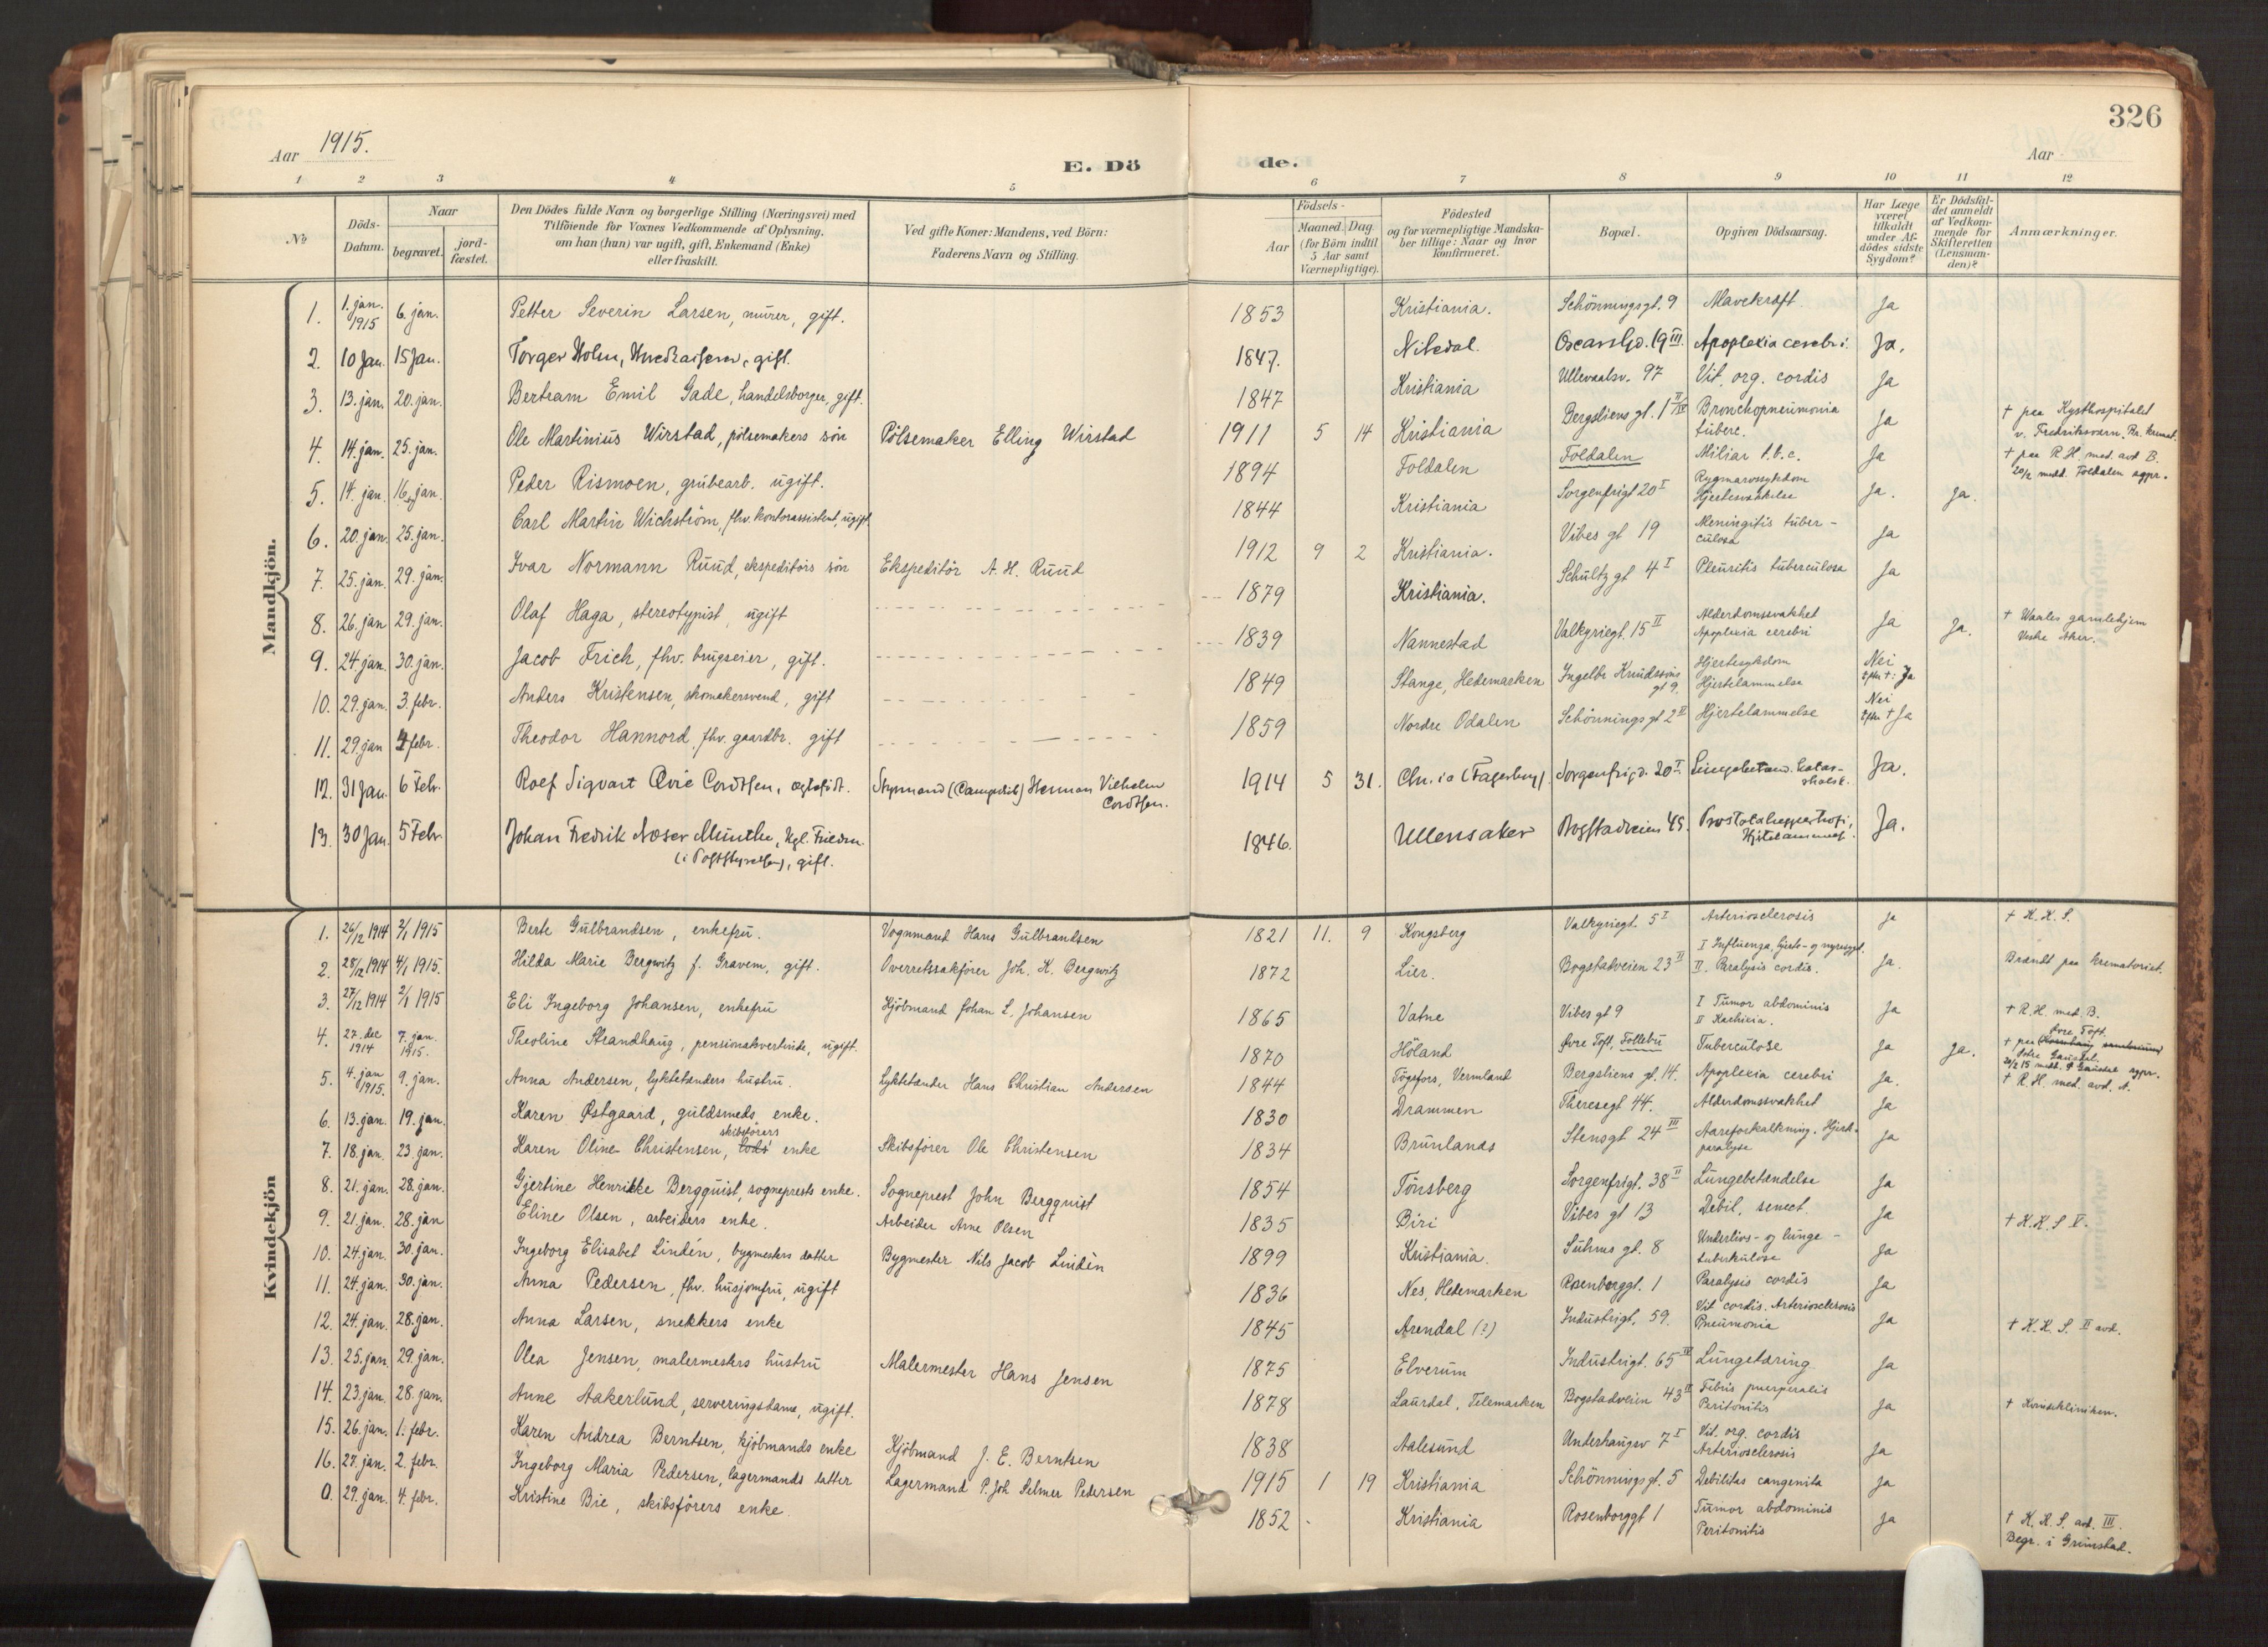 326
Aar 1915.
E. Döde.
Aar
1 2 3 4 5 6 7 8 9 10 11 12
№
Döds-Datum.
Naar
begravet.
jordfæstet.
Den Dödes fulde Navn og borgerlige Stilling (Næringsvei) med
Tilföiende for Voxnes Vedkommende af Oplysning,
om han (hun) var ugift, gift, Enkemand (Enke)
eller fraskilt.
Ved gifte Koner: Mandens, ved Börn:
Faderens Navn og Stilling.
Födsels-
Aar
Maaned. Dag.
(for Börn indtil
5 Aar samt
Værnepligtige).
Födested
og for værnepligtige Mandskaber tillige: Naar og hvor
konfirmeret.
Bopæl.
Opgiven Dödsaarsag.
Har Læge
været
tilkaldt
under Afdödes sidste
Sygdom?
Er Dödsfaldet anmeldt
af Vedkommende for
Skifteretten
(Lensmanden)?
Anmærkninger.
Mandkjön.
1. 1. jan. 1915 6. jan. Petter Severin Larsen, murer, gift. 1853 Kristiania. Schönningsgt. 9 Mavekræft. Ja
2. 10 Jan. 15 Jan. Torger Holm, gift. 1847. Nitedal. Oscarsgd. 19 III. Apoplexia cerebri. Ja.
3. 13. jan. 20. jan. Bertram Emil Gade, handelsborger, gift. 1847 Kristiania Ullevaalsv. 97 Vit. org. cordis Ja
4. 14. jan. 25. jan. Ole Martinius Wirstad, pölsemakers sön Pölsemaker Elling Wirstad 1911 5 14 Kristiania Bergsliens gt. 1 Bronchopneumonia tuberc. Ja † paa Kysthospitalet v. Fredriksværn. Kr. kremat.
5. 14. jan. 16. jan. Peder Rismoen, grubearb. ugift. 1894 Foldalen Foldalen Miliar t.b.c. Ja † paa R.H. med. avd B. 20/2 medd. Foldalen sogpr.
6. 20. jan. 25. jan. Carl Martin Wichström, fhv. kontorassistent, ugift 1844 Kristiania Sorgenfrigt 20 I Rygmarvssykdom Hjertesvakkelse Ja. Ja.
7. 25. jan. 29. jan. Ivar Normann Ruud, ekspeditörs sön Ekspeditör A. H. Ruud 1912 9 2 Kristiania. Vibes gt 19 Meningitis tuberculosa Ja
8. 26. jan 29. jan. Olaf Haga, stereotypist, ugift 1879 Kristiania. Schultz gt 4 I Pleuritis tuberculosa Ja
9. 24. jan. 30. jan. Jacob Frich, fhv. brugseier, gift. 1839 Nannestad Valkyriegt. 15 II Alderdomssvakhet Apoplexia cerebri Ja Ja. † Waales gamlehjem Vestre Aker.
10. 29. jan. 3. febr. Anders Kristensen, skomakersvend, gift 1849 Stange, Hedemarken Ingelbr. Knudssöns gt 9. Hjertesykdom Hjertelammelse Nei efter †: Ja
11. 29. jan 4 febr. Theodor Hannord, fhv. gaardbr. gift 1859 Nordre Odalen Schönnings gt 2 II Hjertelammelse Nei efter † Ja
12. 31 Jan. 6 Febr. Roef Sigvart Qvie Cordtsen, ægtefödt. Styrmand Herman Vilhelm Cordtsen. 1914 5 31. Chr.ia (Fagerborg) Sorgenfrigd. 20 I. Ja.
13. 30 Jan. 5 Febr Johan Fredrik Moser Munthe, Kgl. (i Poststyrelsen), gift. 1846. Ullensaker Bogstadveien 45. Ja.
Kvindekjön
1. 26/12 1914 2/1 1915 Berte Gulbrandsen, enkefru. Vognmand Hans Gulbrandsen 1821 11. 9 Kongsberg Valkyriegt. 5 I Arteriosclerosis Ja † K.K.S.
2. 28/12 1914 4/1 1915. Hilda Marie Bergwitz f. Gravem, gift. Overretssakförer Joh. K. Bergwitz 1872 Lier. Bogstadveien 23 II I Influenza, hjerte- og nyresygd. II. Paralysis cordis. Ja. Brændt paa krematoriet.
3. 27/12 1914 2/1 1915 Eli Ingeborg Johansen, enkefru Kjöbmand Johan L. Johansen 1865 Vatne Vibes gt 9 I Tumor abdominis II Kachexia. Ja † R.H. med. B.
4. 27. dec 1914 7. jan. 1915. Theoline Strandhaug, pensionatvertinde, ugift. 1870 Höland Øvre Toft, Follebu Tuberculose Ja Ja. † paa Øvre Toft.
5. 4. jan 1915. 9. jan. Anna Andersen, lyktetænders hustru. Lyktetænder Hans Christian Andersen 1844 Tögsfors, Vermland Bergsliens gt. 14. Apoplexia cerebri Ja. † R.H. med. avd. A.
6. 13. jan. 19. jan. Karen Østgaard, guldsmeds enke. 1830 Drammen Theresegt 44. Alderdomssvakhet Ja
7. 18. jan. 23. jan. Karen Oline Christensen, skibsförers enke Skibsförer Ole Christensen 1834 Brunlanæs Stensgt 24 III Aareforkalkning. Hjerteparalyse Ja
8. 21. jan. 28. jan. Gjertine Henrikke Bergquist, sogneprests enke. Sogneprest John Bergquist 1854 Tönsberg Sorgenfrigt. 38 II Lungebetændelse Ja
9. 21. jan. 28. jan Eline Olsen, arbeiders enke. Arbeider Arne Olsen 1835 Biri Vibes gt 13 Debil. senect. Ja † K.K.S V.
10. 24. jan. 30. jan. Ingeborg Elisabet Lindén, bygmesters datter Bygmester Nils Jacob Lindén 1899 Kristiania. Suhms gt. 8 Underlivs- og lungetuberkulose Ja
11. 24. jan. 30. jan. Anna Pedersen, fhv. husjomfru, ugift 1836 Nes, Hedemarken Rosenborggt. 1 Paralysis cordis Ja
12. 24. jan. 28. jan. Anna Larsen, snekkers enke 1845 Arendal (?) Industrigt. 59. Vit cordis. Arteriosclerosis Pneumonia Ja † K.K.S. II avd.
13. 25. jan. 29. jan. Olea Jensen, malermesters hustru Malermester Hans Jensen 1875 Elverum Industrigt. 65 Lungetæring Ja
14. 23. jan. 28. jan. Anne Aakerlund, serveringsdame, ugift. 1878 Laurdal, Telemarken Bogstadveien 43 II Febris puerperalis Peritonitis Ja † Kvindekliniken.
15. 26. jan. 1. febr. Karen Andrea Berntsen, kjöbmands enke Kjöbmand J. E. Berntsen 1838 Aalesund Underhaugsv 7 I Vit. org. cordis Arteriosclerosis Ja
16. 27. jan. 2. febr. Ingeborg Maria Pedersen, lagermands datter Lagermand P. Joh Selmer Pedersen 1915 1 19 Kristiania Schönnings gt. 5 Debilitas congenita Ja
0. 29. jan. 4. febr. Kristine Bie, skibsförers enke. 1852 Kristiania Rosenborggt 1 Tumor abdominis Peritonitis Ja † K.K.S. avd. III. Begr. i Grimstad.